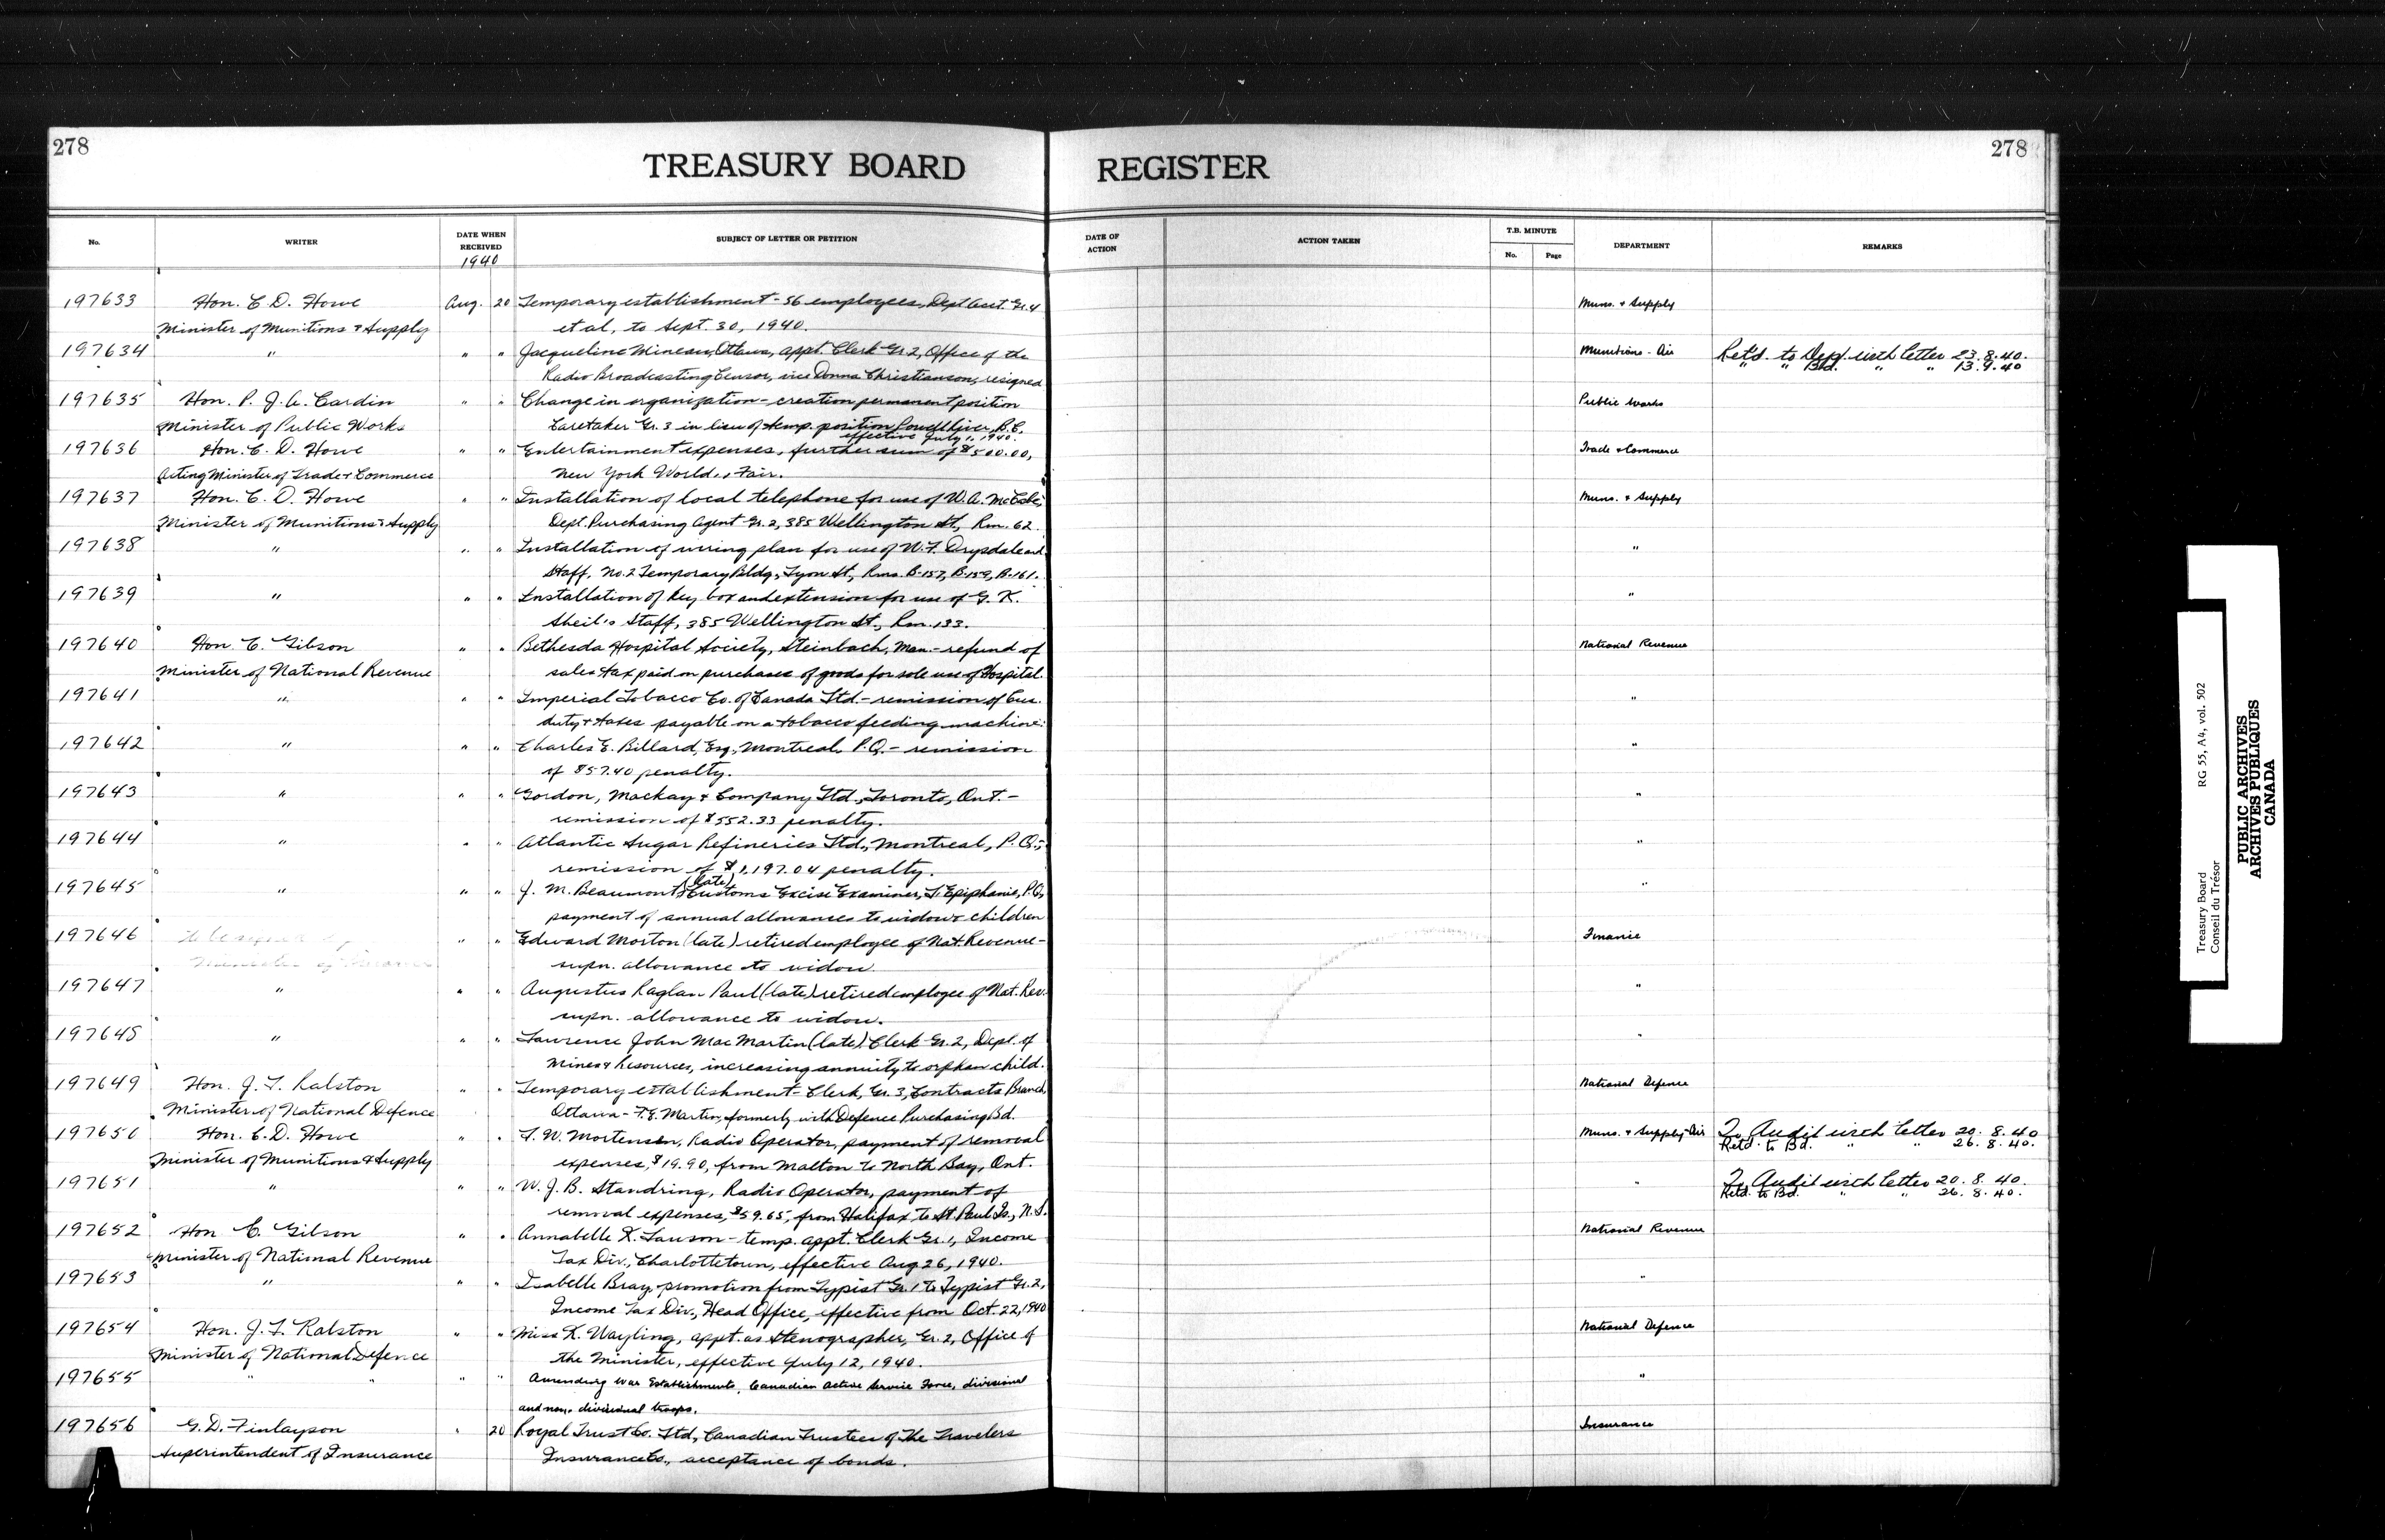 278
278
TREASURY BOARD REGISTER
No. WRITER DATE WHEN RECEIVED SUBJECT OF LETTER OR PETITION DATE OF ACTION ACTION TAKEN T.B. MINUTE No. Page DEPARTMENT REMARKS
1940
197633 Hon. C. D. Howe Aug. 20 Temporary establishment - 56 employees, Dept. Acct. Gr. 4 Muns. & Supply
Minister of Munitions & Supply et al, to Sept. 30, 1940.
197634 " " " Jacqueline Mineau, Ottawa, appt. Clerk Gr 2, Office of the Munitions - Air Ret'd. to Dept. with letter 23.8.40.
Radio Broadcasting Censor, vice Donna Christianson, resigned " " Bd. " " 13.9.40
197635 Hon. P. J. A. Cardin " " Change in organization - creation permanent position Public Works
Minister of Public Works Caretaker Gr. 3 in lieu of temp. position Powell River, B.C.
effective July 1, 1940.
197636 Hon. C. D. Howe " " Entertainment expenses, further sum of $500.00, Trade & Commerce
Acting Minister of Trade & Commerce New York World's Fair.
197637 Hon. C. D. Howe " " Installation of local telephone for use of W. A. McCabe, Muns. & Supply
Minister of Munitions & Supply Dept. Purchasing Agent Gr. 2, 385 Wellington St., Rm. 62.
197638 " " " Installation of wiring plan for use of W. F. Drysdale and "
Staff, No. 2 Temporary Bldg., Lyon St., Rms. B-157, B-159, B-161.
197639 " " " Installation of key box and extension for use of G. K. "
Sheil's Staff, 385 Wellington St., Rm. 133.
197640 Hon. C. Gibson " " Bethesda Hospital Society, Steinbach, Man. - refund of National Revenue
Minister of National Revenue sales tax paid on purchases of goods for sole use of Hospital.
197641 " " " Imperial Tobacco Co. of Canada Ltd. - remission of Cus. "
duty & taxes payable on a tobacco feeding machine.
197642 " " " Charles E. Billard, Esq., Montreal, P.Q. - remission "
of $57.40 penalty.
197643 " " " Gordon, Mackay & Company Ltd., Toronto, Ont. - "
remission of $552.33 penalty.
197644 " " " Atlantic Sugar Refineries Ltd., Montreal, P.Q., "
remission of $1,197.04 penalty.
197645 " " " J. M. Beaumont (late) Customs Excise Examiner, L'Epiphanie, P.Q., "
payment of annual allowances to widow & children
197646 " " Edward Morton (late) retired employee of Nat. Revenue - Finance
Minister of Finance supn. allowance to widow.
197647 " " " Augustus Raglan Paul (late) retired employee of Nat. Rev. "
supn. allowance to widow.
197648 " " " Lawrence John MacMartin (late) Clerk Gr. 2, Dept. of "
Mines & Resources, increasing annuity to orphan child.
197649 Hon. J. L. Ralston " " Temporary establishment - Clerk, Gr. 3, Contracts Branch, National Defence
Minister of National Defence Ottawa - F. E. Martin, formerly with Defence Purchasing Bd.
197650 Hon. C. D. Howe " " T. W. Mortensen, Radio Operator, payment of removal Muns. & Supply - Air To Audit with letter 20.8.40
Minister of Munitions & Supply expenses, $19.90, from Malton to North Bay, Ont. Retd. to Bd. " " 26.8.40.
197651 " " " W. J. B. Standring, Radio Operator, payment of " To Audit with letter 20.8.40.
removal expenses, $59.65, from Halifax to St. Paul Is., N.S. Retd. to Bd. " " 26.8.40.
197652 Hon C. Gibson " " Annabelle K. Lawson - temp. appt. Clerk Gr. 1, Income National Revenue
Minister of National Revenue Tax Div., Charlottetown, effective Aug 26, 1940.
197653 " " " Isabelle Bray, promotion from Typist Gr. 1 to Typist Gr. 2, "
Income Tax Div., Head Office, effective from Oct. 22, 1940
197654 Hon. J. L. Ralston " " Miss K. Wayling, appt. as Stenographer, Gr. 2, Office of National Defence
Minister of National Defence the Minister, effective July 12, 1940.
197655 " " " " Amending War Establishments, Canadian Active Service Force, divisional "
and non-divisional troops.
197656 G. D. Finlayson " 20 Royal Trust Co. Ltd., Canadian Trustees of The Travelers Insurance
Superintendent of Insurance Insurance Co., acceptance of bonds.
Treasury Board RG 55, A4, vol. 502
Conseil du Trésor
PUBLIC ARCHIVES
ARCHIVES PUBLIQUES
CANADA